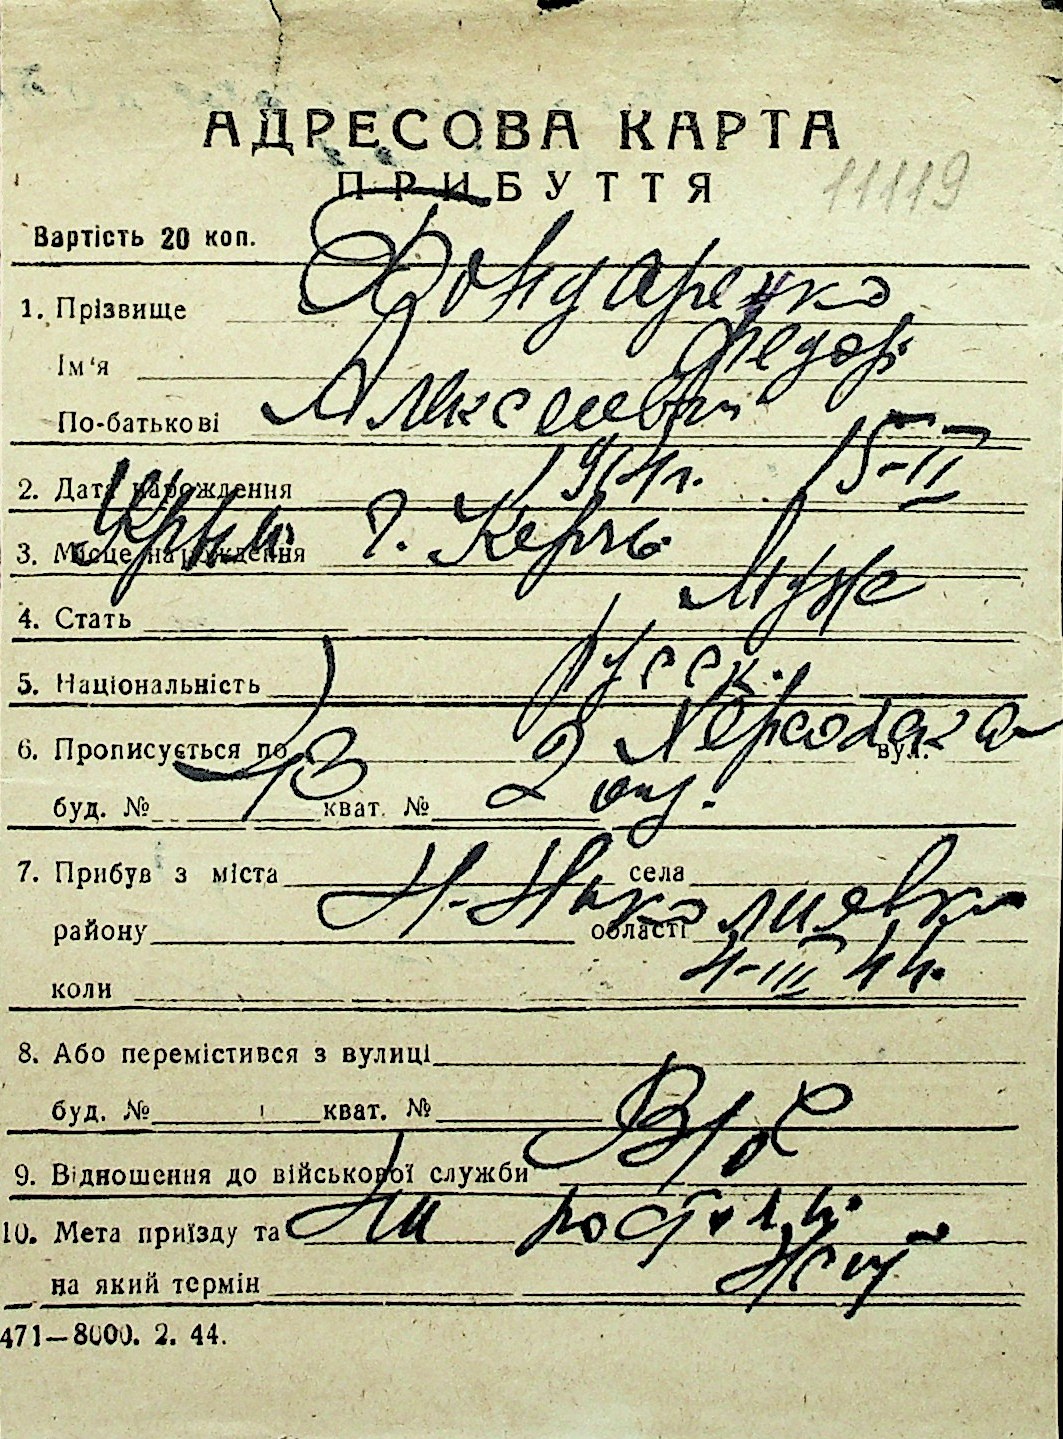 АДРЕСОВА КАРТА
ПРИБУТТЯ
11119
Вартість 20 коп.
1. Прізвище Бондаренко
Ім'я Федор
По-батькові Алексеевич
2. Дата народження 1914 г. 15-II
3. Місце народження Крым г. Керчь
4. Стать муж
5. Національність русск.
6. Прописується по 2 Херсонская вул.
буд. № 13 кват. №
7. Прибув з міста села
району області
коли 4-III 44.
8. Або перемістився з вулиці
буд. № кват. №
9. Відношення до військової служби В/об
10. Мета приїзду та На
на який термін
471—8000. 2. 44.